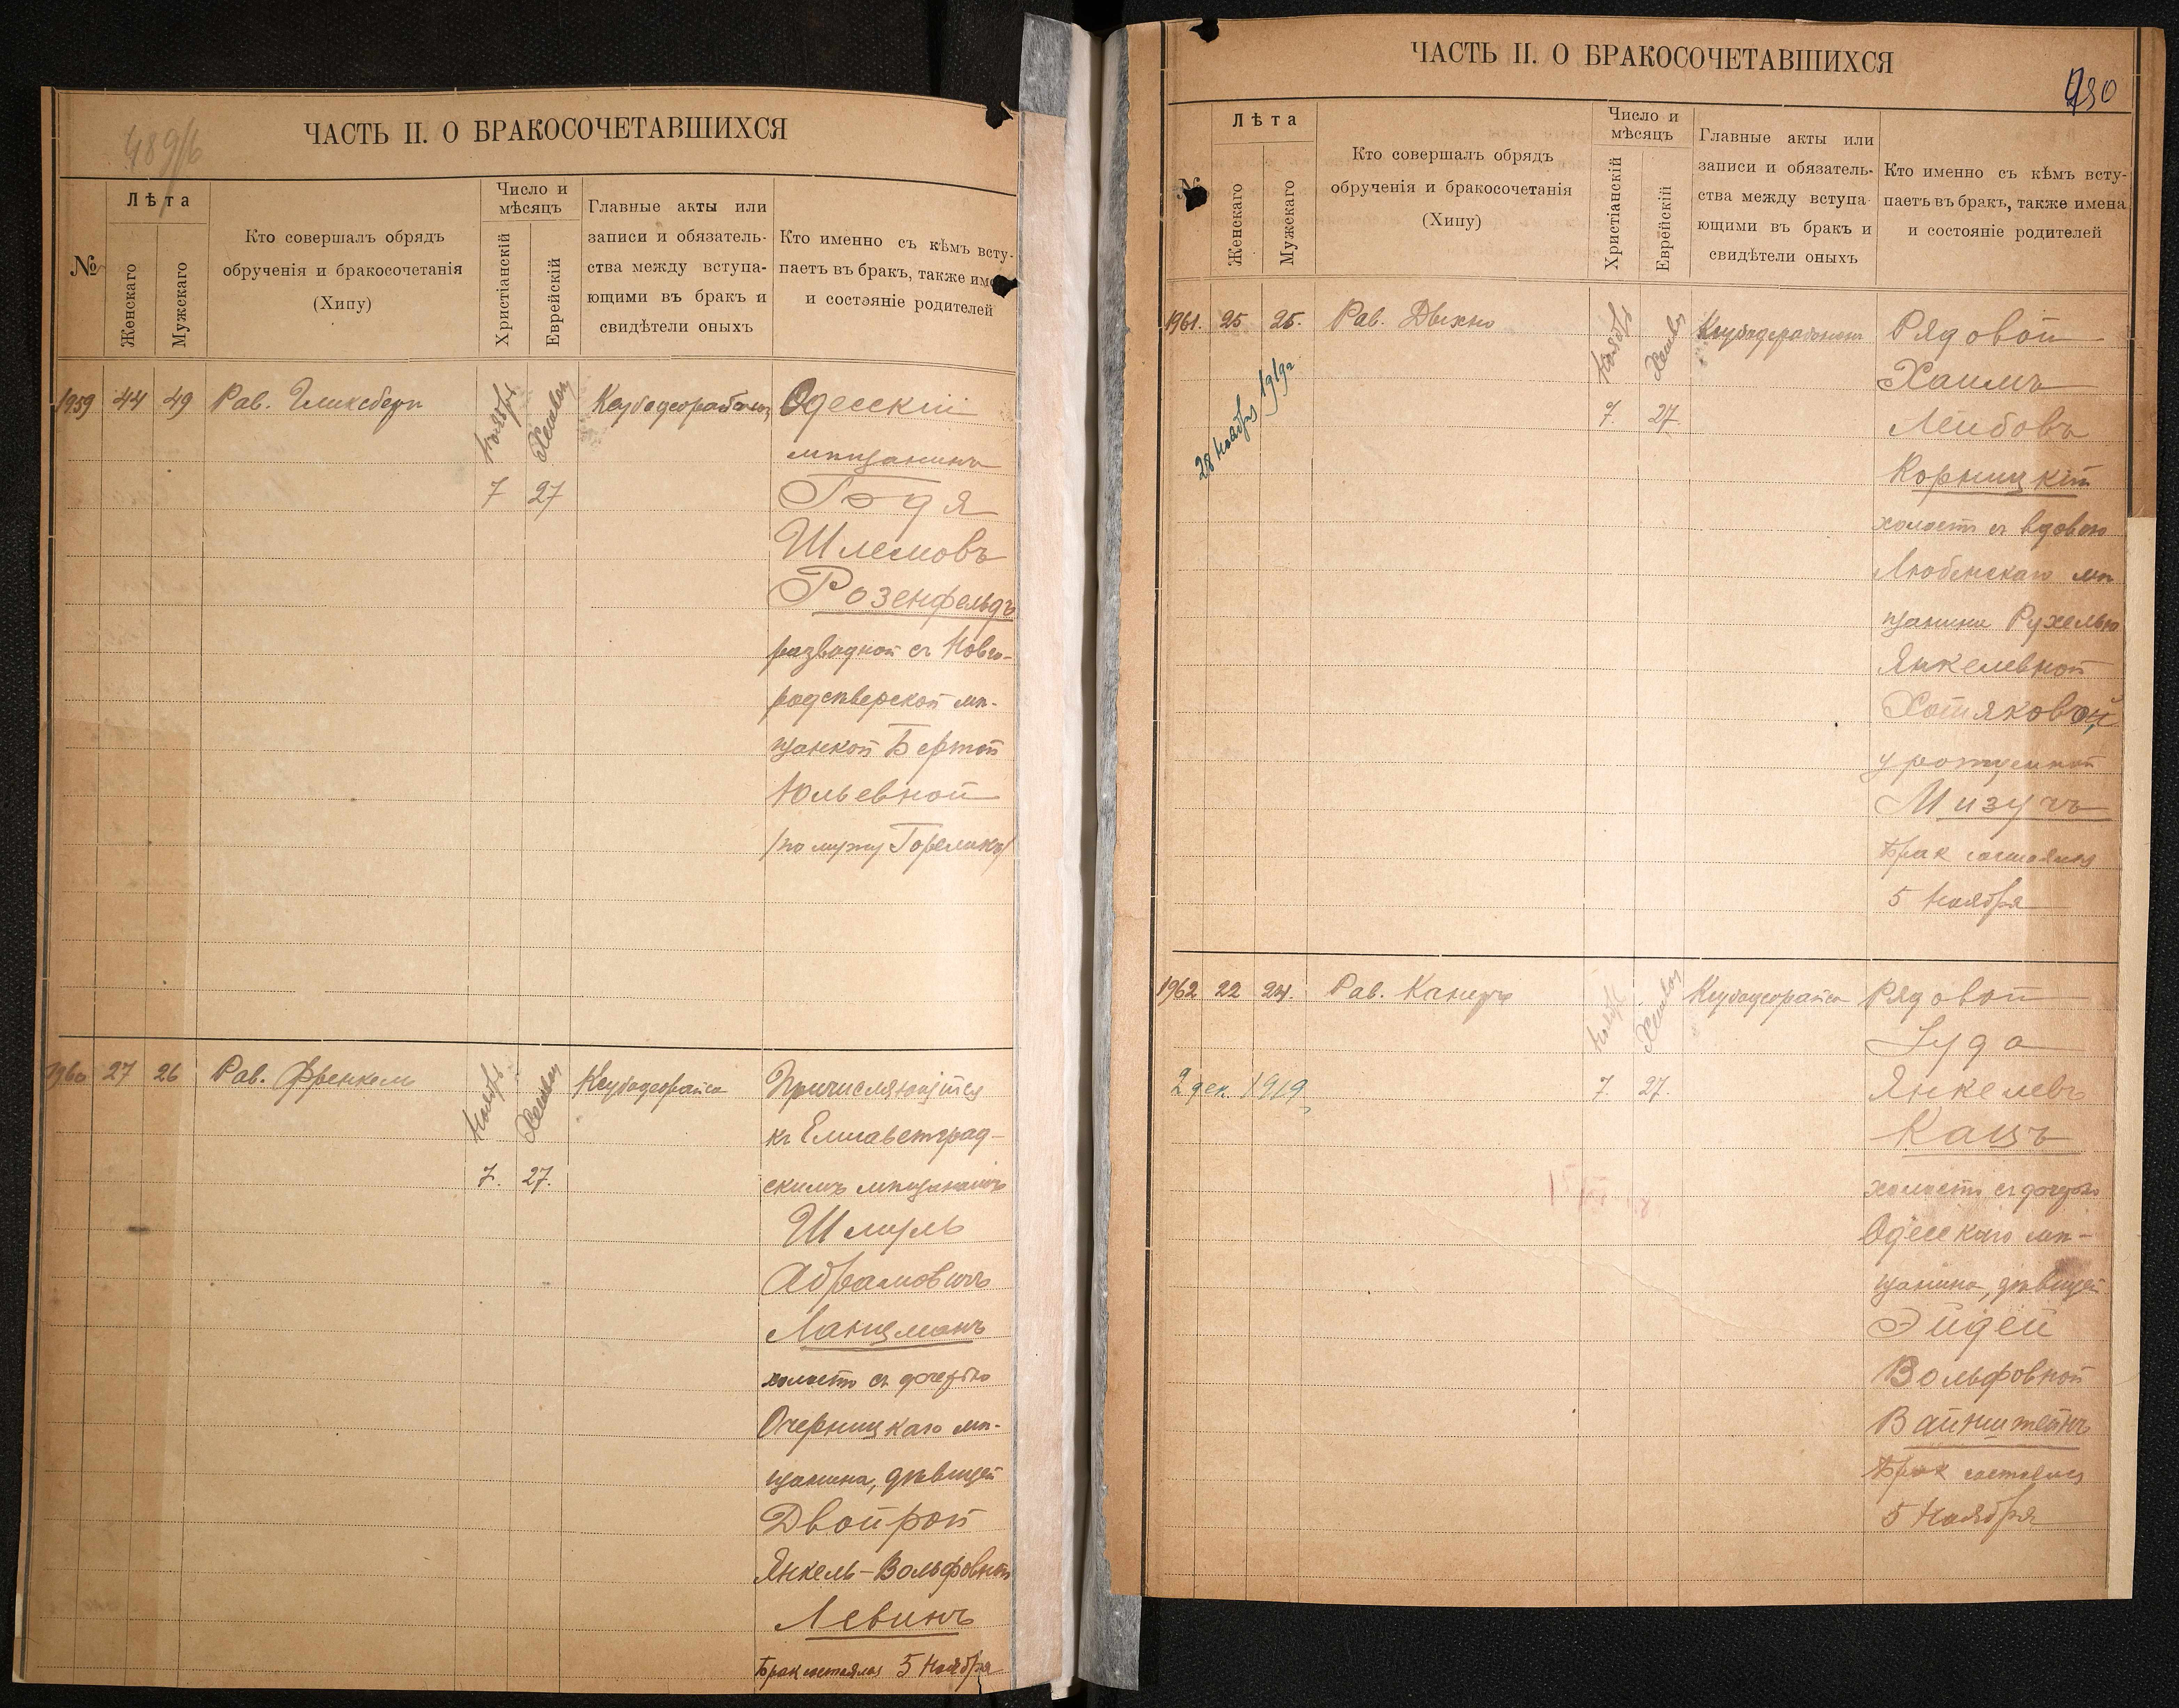 489/6
ЧАСТЬ II. О БРАКОСОЧЕТАВШИХСЯ
№
Лѣта
Женскаго
Мужескаго
Кто совершалъ обрядъ
обрученія и бракосочетанія
(Хипу)
Число и
мѣсяцъ
Христіанскій
Еврейскій
Главные акты или
записи и обязатель-
ства между вступа-
ющими въ бракъ и
свидѣтели оныхъ
Кто именно съ кѣмъ всту-
паетъ въ бракъ, также име
и состояніе родителей
1959 44 49 Рав. Гликсберг Ноябрь Хешван Одесскій
мѣщанинъ
7 27
Шлемовъ
Розенфельдъ
разводной съ Новго-
родсѣверской мѣ-
щанкой Бертой
Юльевной
/по мужу Гореликъ/
1960 27 26 Рав. Френкель Ноябрь Хешван Причисляющійся
къ Елисаветград-
7. 27. скимъ мѣщанамъ
Шмуль
Абрамовичъ
Ланцманъ
холостъ съ дочерью
мѣ-
щанина, дѣвицей
Двойрой
Янкель-Вольфовной
Левинъ
Брак состоялся 5 Ноября
ЧАСТЬ II. О БРАКОСОЧЕТАВШИХСЯ
490
№
Лѣта
Женскаго
Мужскаго
Кто совершалъ обрядъ
обрученія и бракосочетанія
(Хипу)
Число и
мѣсяцъ
Христіанскій
Еврейскій
Главные акты или
записи и обязатель-
ства между вступа-
ющими въ бракъ и
свидѣтели оныхъ
Кто именно съ кѣмъ всту-
паетъ въ бракъ, также имена
и состояніе родителей
1961. 25 25. Рав. Ноябрь Хешван Рядовой
Хаимъ
28 Ноября 1919г
7. 27 Лейбовъ
Корницкій
холостъ съ вдовою
мѣ
щанина Рухелью
Янкелевной
Хотяковой
урожденной
Мизучъ
Брак состоялся
5 Ноября
1962 22 24. Рав. Ноябрь Хешван Рядовой
Іуда
2 дек. 1919 7. 27. Янкелевъ
Кацъ
холостъ съ дочерью
Одесскаго мѣ-
щанина, дѣвицей
Эйдей
Вольфовной
Вайнштейнъ
Брак состоялся
5 Ноября